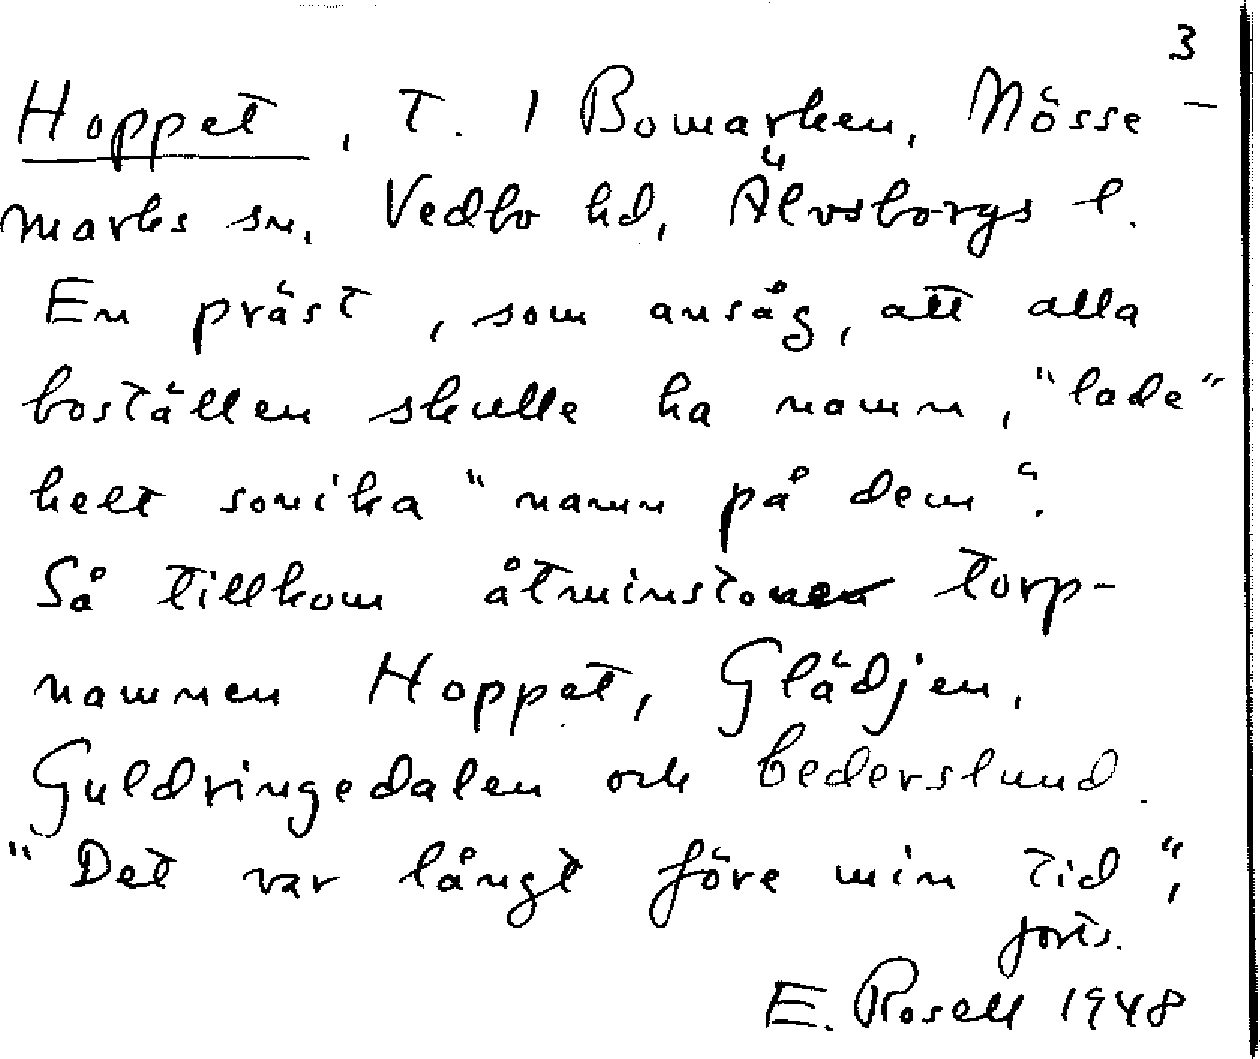 3
Hoppet, t. 1 Bomarken, Nösse-
marks sn, Vedbo hd, Älvsborgs l.
En präst, som ansåg, att alla
boställen skulle ha namn, "lade"
helt sonika "namn på dem".
Så tillkom åtminstone torp-
namnen Hoppet, Glädjen,
Guldringedalen och Cederslund.
"Det var långt före min tid",
forts.
E. Rosell 1948